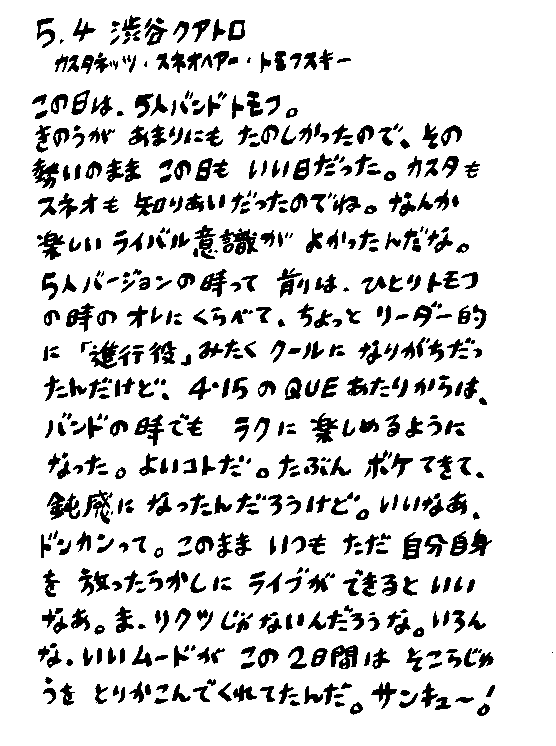 5.4 渋谷クアトロ
カスタネッツ・スネオヘアー・トモフスキー
この日は、5人バンドトモフ。
きのうが あまりにも たのしかったので、その
勢いのまま この日も いい日だった。カスタも
スネオも 知りあいだったのでね。なんか
楽しい ライバル意識が よかったんだな。
5人バージョンの時って 前りは、ひとりトモフ
の時の オレに くらべて、ちょっと リーダー的
に「進行役」みたく クールに なりがちだっ
たんだけど、4・15のQUEあたりからは、
バンドの時でも ラクに 楽しめるように
なった。よいコトだ。たぶん ボケてきて、
鈍感に なったんだろうけど。いいなあ、
ドンカンって。このまま いつも ただ 自分自身
を 放ったらかしに ライブが できると いい
なあ。ま、リクツじゃないんだろうな。いろん
な、いいムードが この2日間は そこらじゅ
うを とりかこんでくれてたんだ。サンキュ〜!